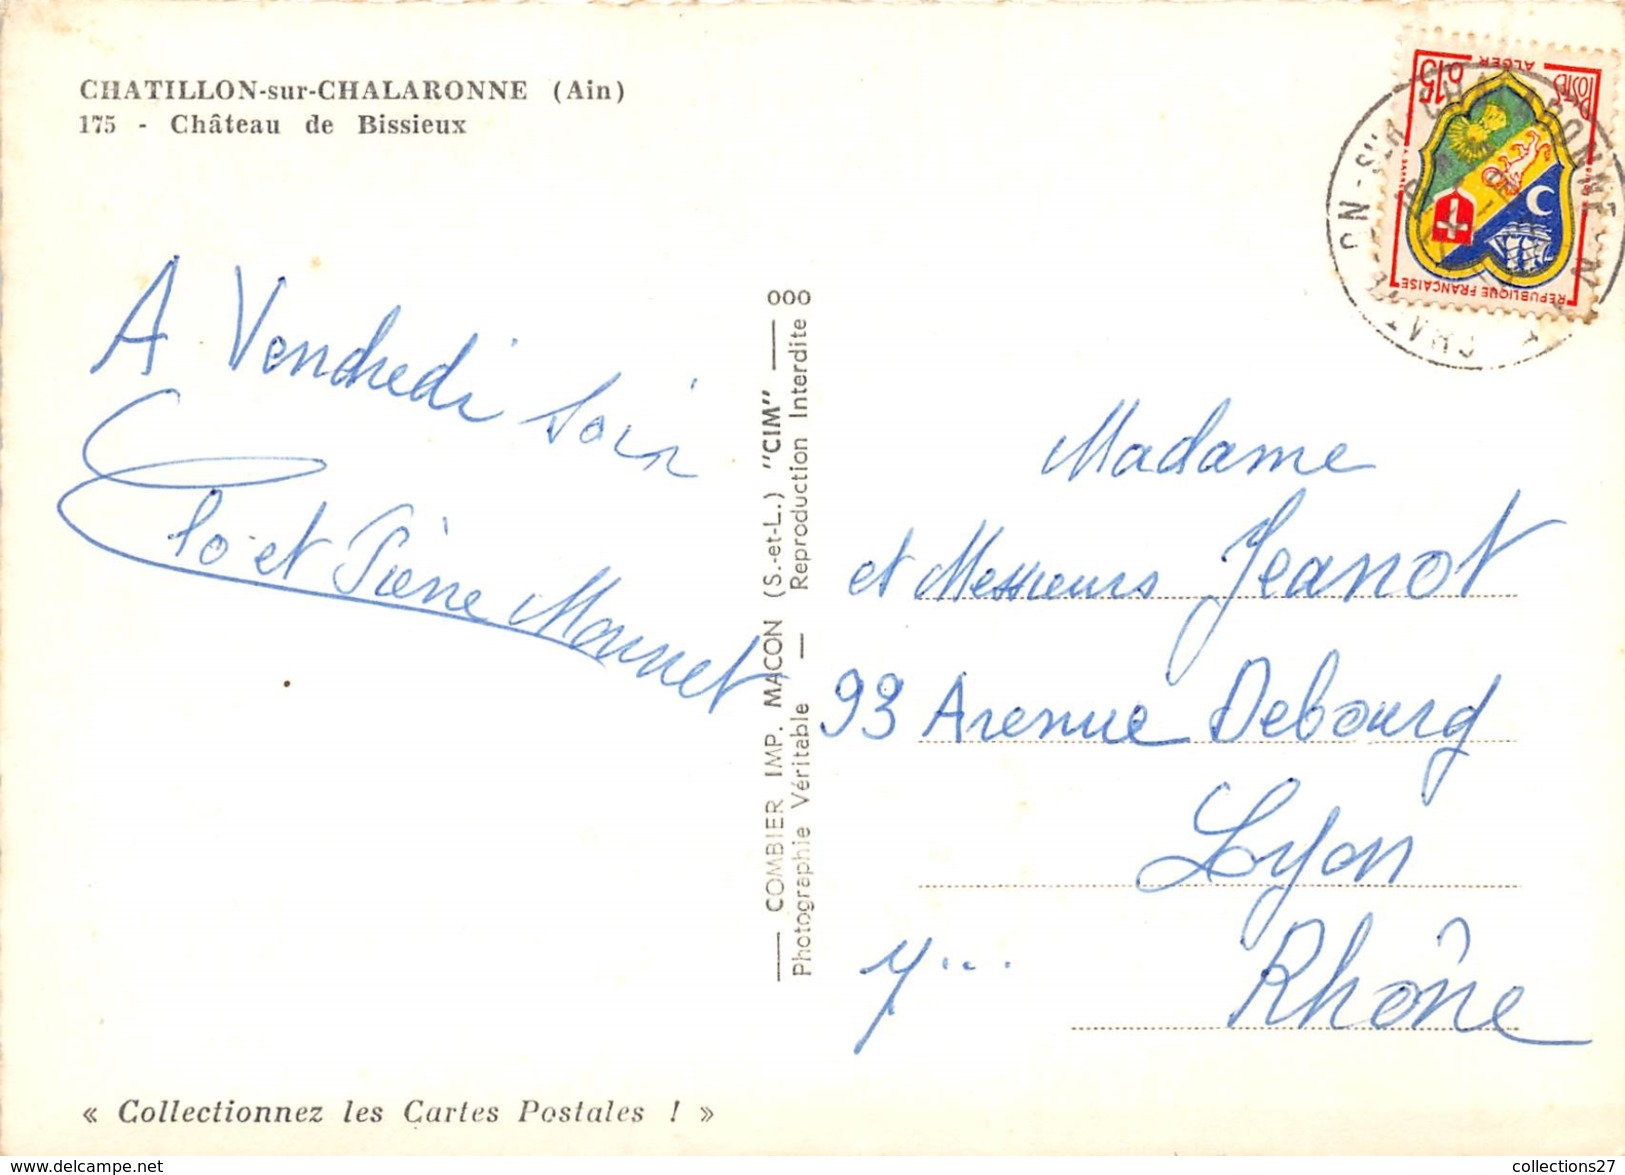 CHATILLON-sur-CHALARONNE (Ain)
175 - Château de Bissieux
0,15
POSTES
ALGER
REPUBLIQUE FRANÇAISE
A Vendredi soir
Clo et Pierre Monnet
COMBIER IMP. MACON (S.-et-L.) "CIM" 000
Photographie Véritable — Reproduction Interdite
Madame
et Messieurs Jeanot
93 Avenue Debourg
Lyon
7...
Rhône
« Collectionnez les Cartes Postales ! »
collections27